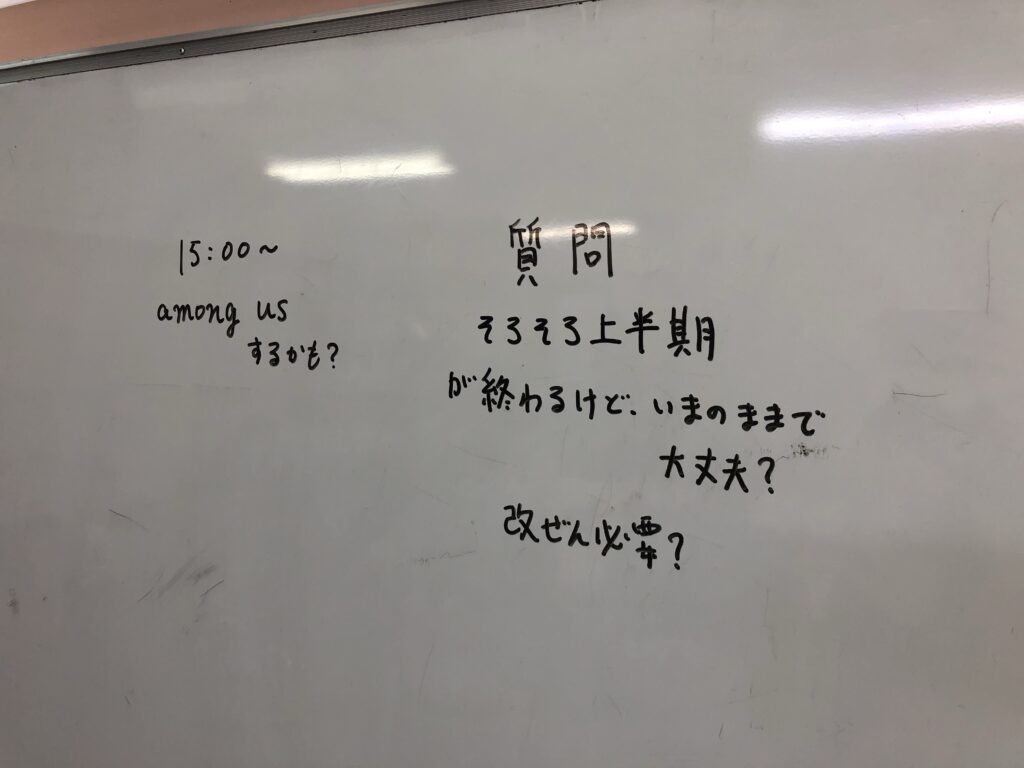 15:00～
among us
するかも?
質問
そろそろ上半期
が終わるけど、いまのままで
大丈夫?
改ぜん必要?